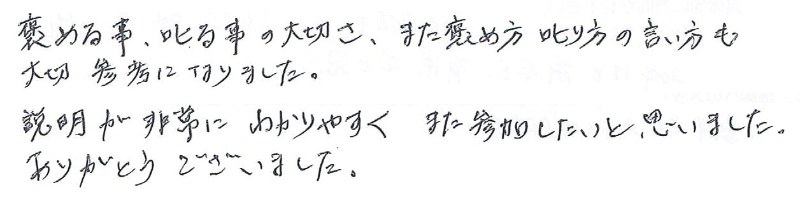 褒める事、叱る事の大切さ、また褒め方 叱り方の言い方も
大切 参考になりました。
説明が非常にわかりやすく また参加したいと思いました。
ありがとうございました。